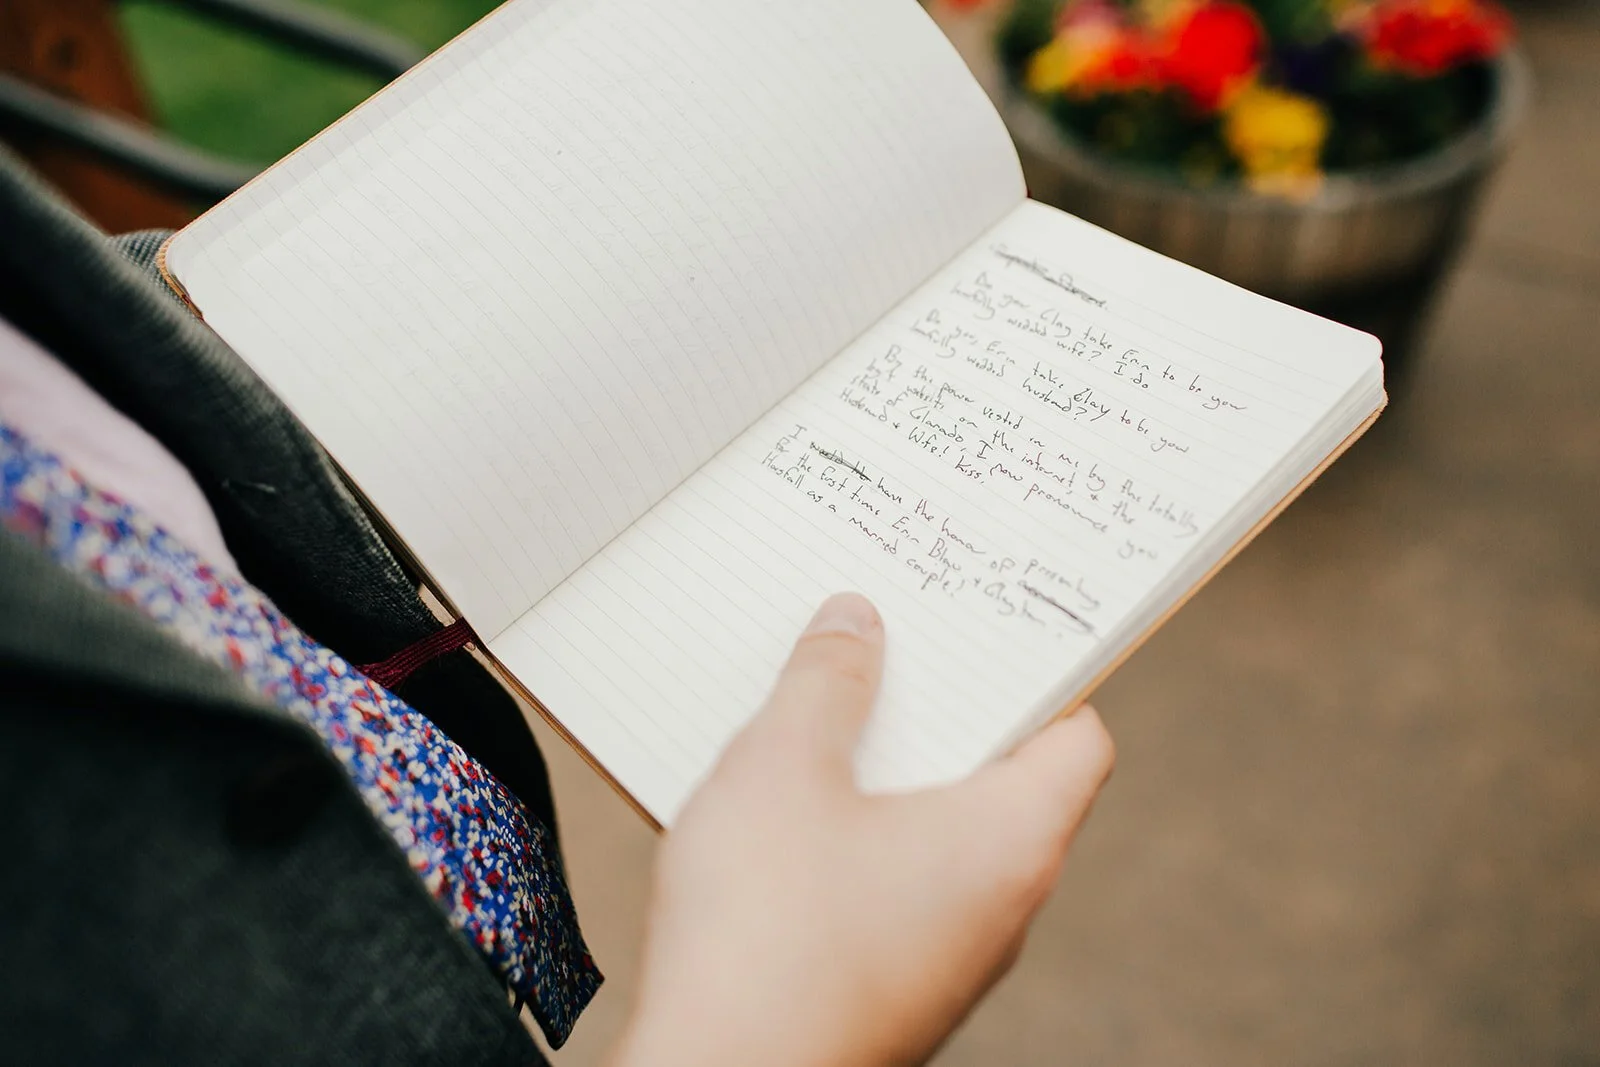 Do you Clay take Erin to be your
lawfully wedded wife? I do
Do you, Erin take Clay to be your
lawfully wedded husband?
By the power vested in me by the totally
legit website on the internet, & the
state of Colorado, I now pronounce you
Husband & Wife! Kiss.
I have the honor of presenting
for the first time Erin Blaw & Clayton
Hoesfall as a married couple!